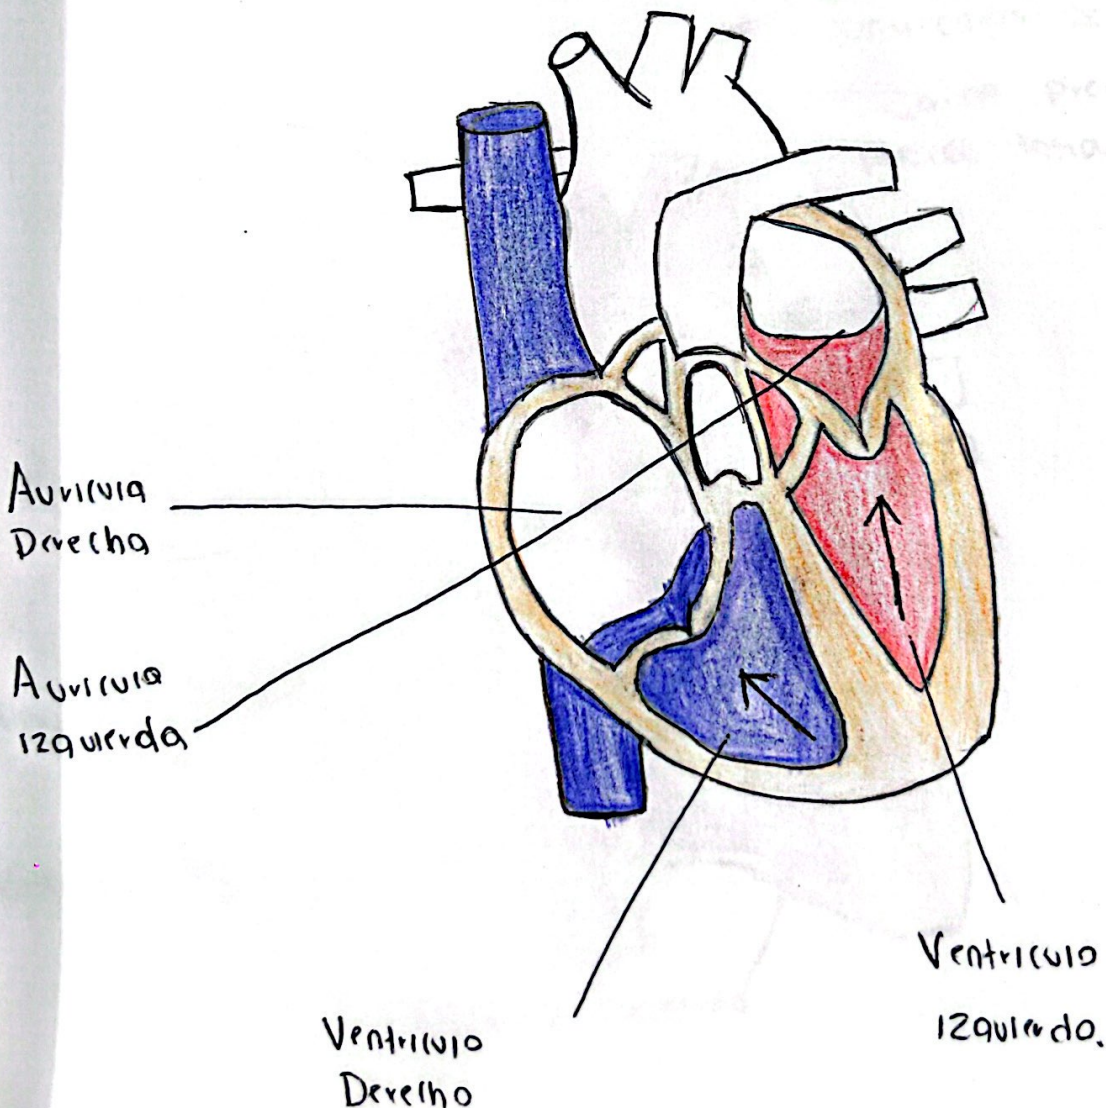 Auricula
Derecha
Auricula
izquierda
Ventriculo
Derecho
Ventriculo
izquierdo.